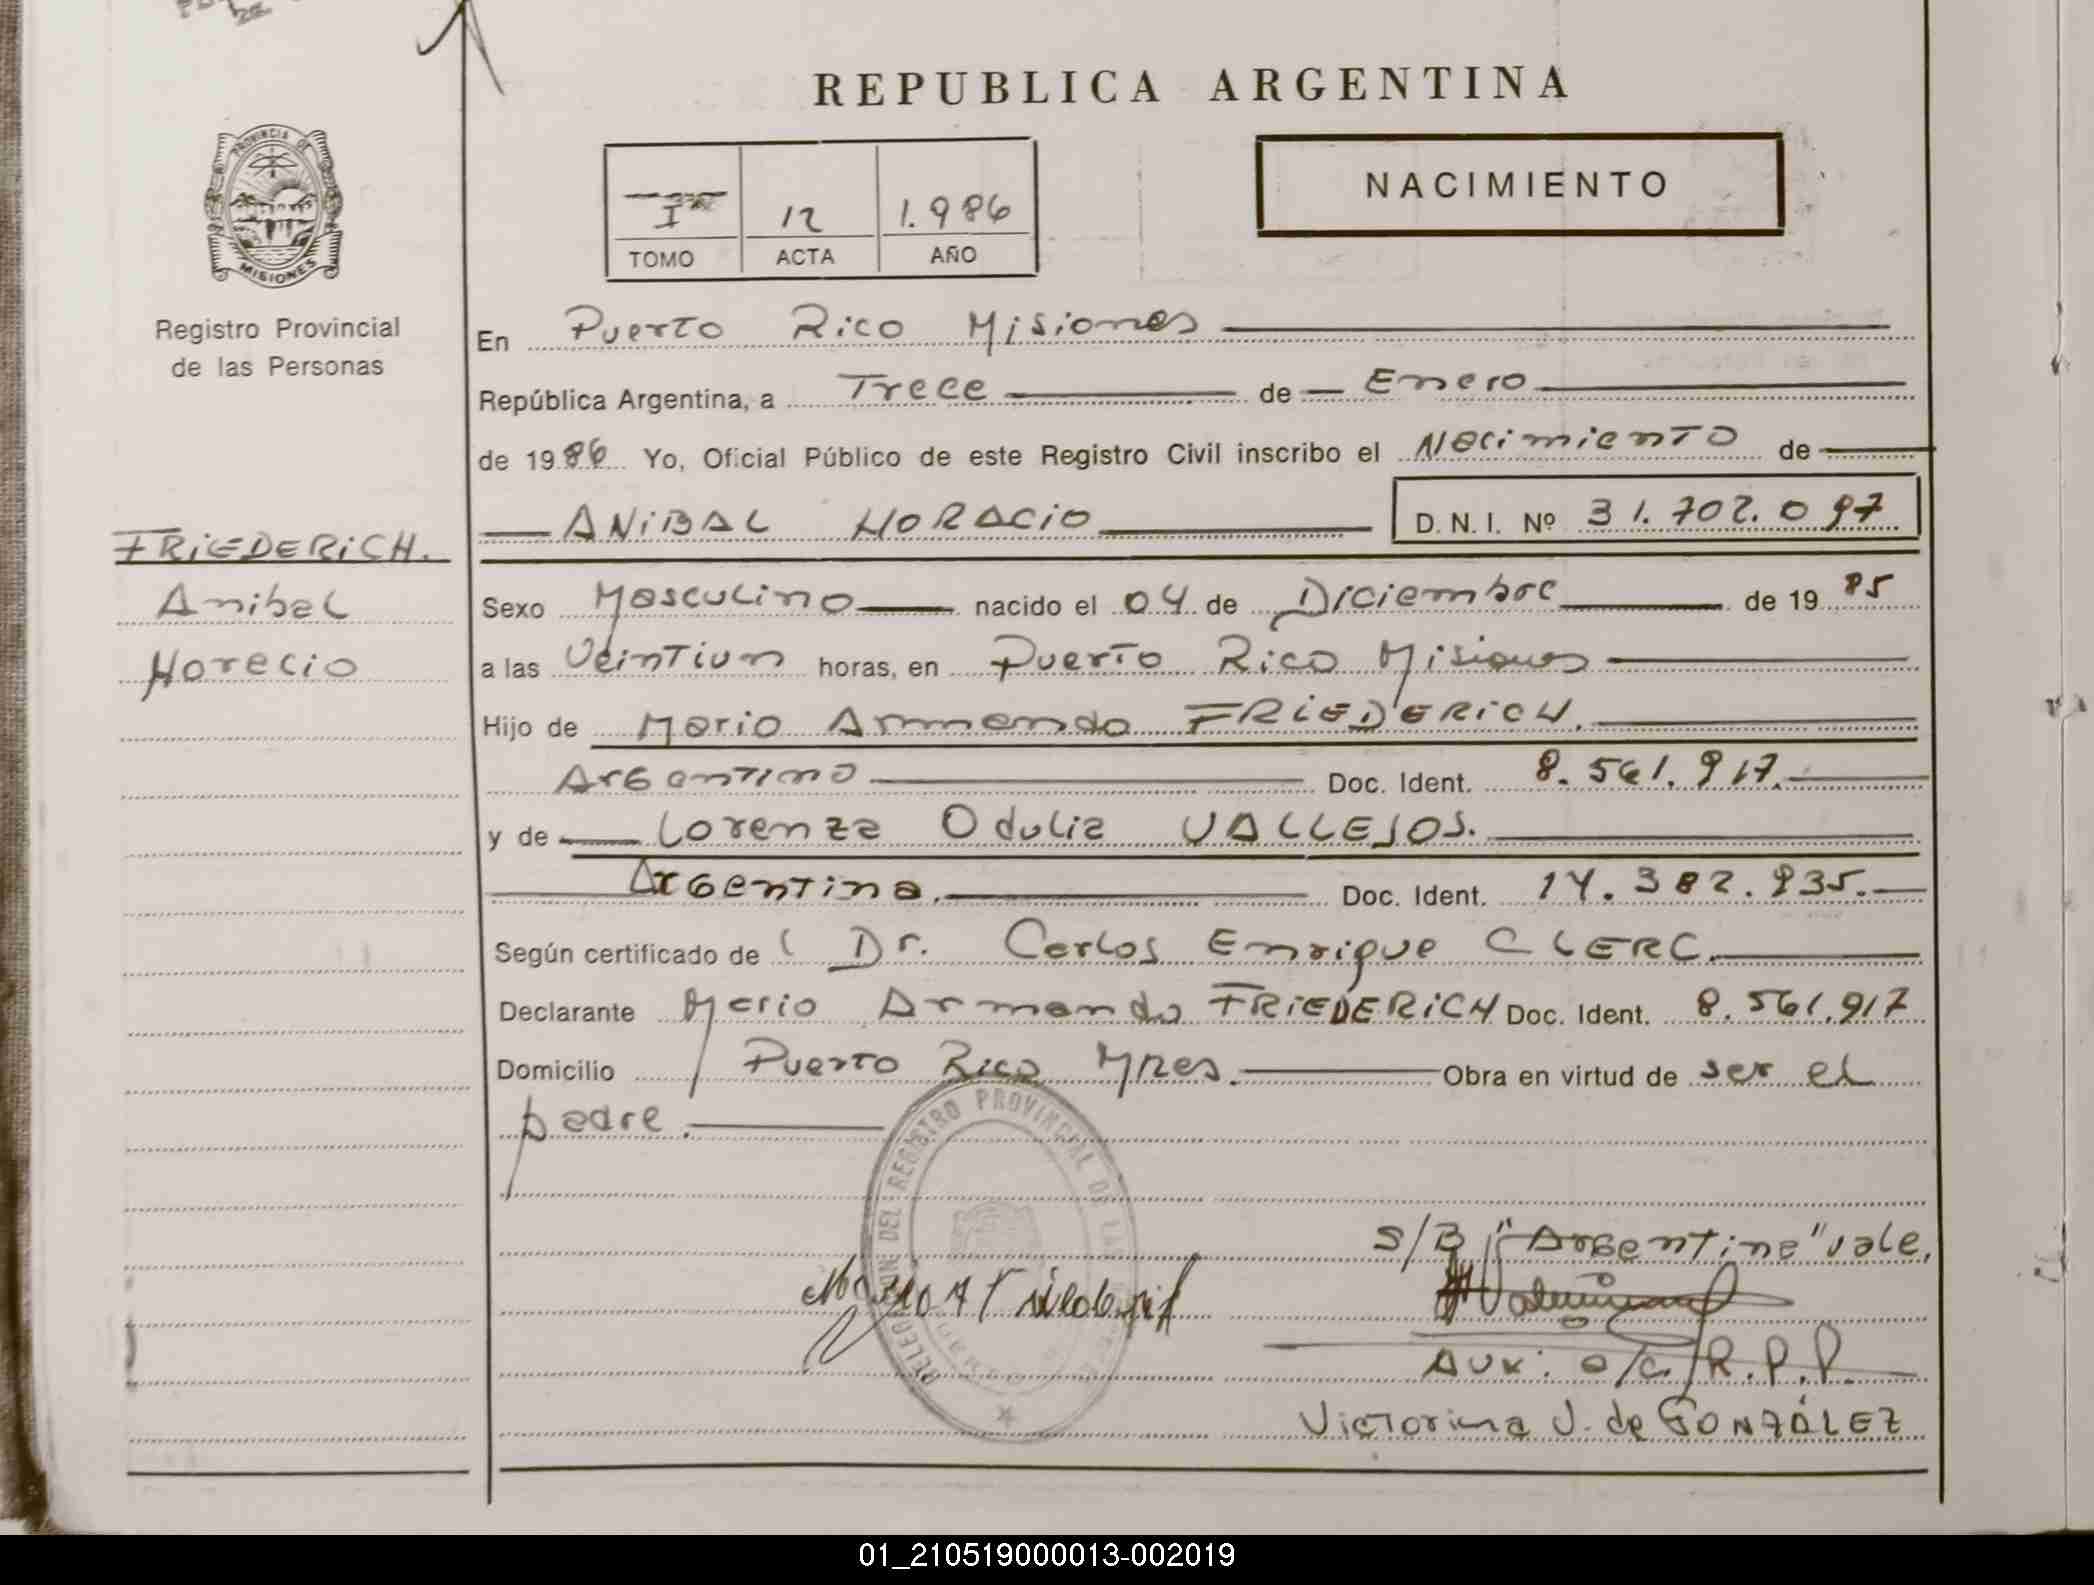 REPUBLICA ARGENTINA
PROVINCIA DE
MISIONES
Registro Provincial
de las Personas
I 12 1.986
TOMO ACTA AÑO
NACIMIENTO
En Puerto Rico Misiones
República Argentina, a Trece de Enero
de 1986 Yo, Oficial Público de este Registro Civil inscribo el Nacimiento de
ANIBAL HORACIO D.N.I. Nº 31.702.097
FRIEDERICH.
Anibal
Horacio
Sexo Masculino nacido el 04 de Diciembre de 1985
a las Veintiun horas, en Puerto Rico Misiones
Hijo de Mario Armando FRIEDERICH.
Argentino Doc. Ident. 8.561.917.
y de Lorenza Odulia VALLEJOS.
Argentina. Doc. Ident. 14.382.835.
Según certificado de Dr. Carlos Enrique CLERC.
Declarante Mario Armando FRIEDERICH Doc. Ident. 8.561.917
Domicilio Puerto Rico Mnes. Obra en virtud de ser el
padre.
REGISTRO PROVINCIAL DE LAS
S/B "Argentina" vale.
Aux. o/c. R.P.P.
Victorina V. de GONZÁLEZ
01_210519000013-002019